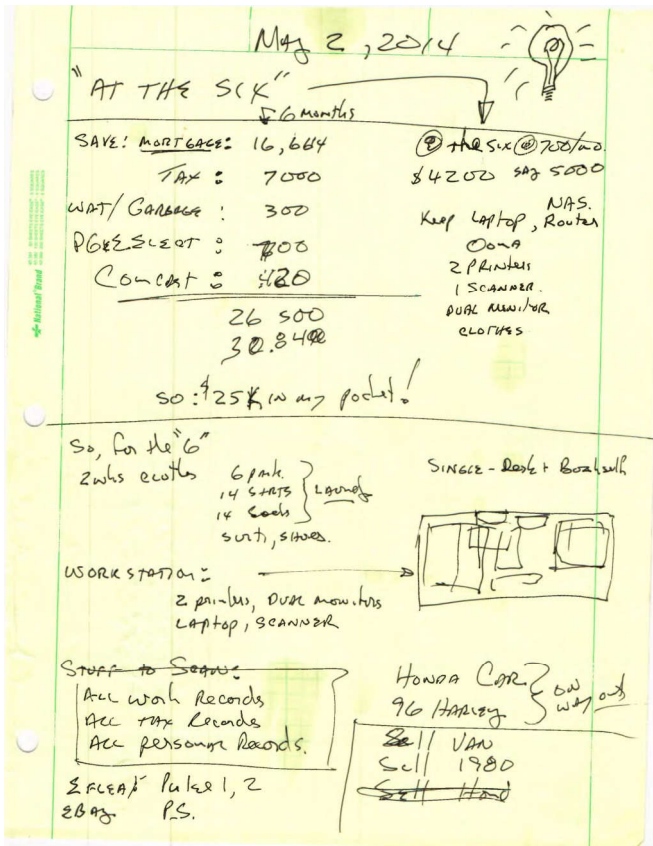 May 2, 2014
"AT THE SIX"
6 months
SAVE: MORTGAGE: 16,664
TAX: 7000
WAT/GARBAGE: 300
PG&E ELECT:
Comcast: 420
26 500
30.840
SO: $25K IN my pocket!
@ the SIX @ 700/mo.
$4200 say 5000
NAS.
Keep LAPTOP, Router
OOMA
2 PRINTERS
1 SCANNER.
DUAL MONITOR
CLOTHES
National Brand
So, for the "6"
2 wks
6 pants.
14 SHIRTS
14 Socks
LAUNDRY
suits, SHOES.
SINGLE - Desk + Bookshelf
WORKSTATION:
2 printers, DUAL monitors
LAPTOP, SCANNER
STUFF TO SCAN:
ALL Work Records
ALL TAX Records
ALL personal Records.
HONDA CAR
96 HARLEY
ON WAY out
Sell VAN
Sell 1980
Sell Hond
Pulse 1, 2
EBAY P.S.